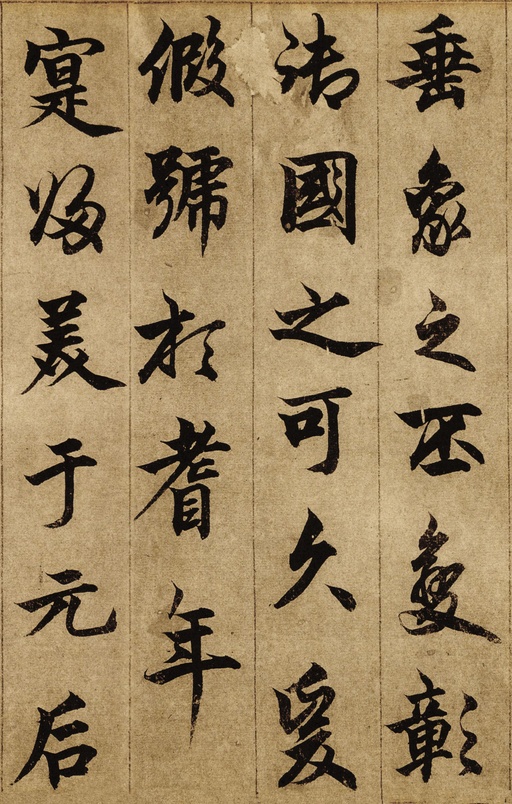 垂象之丕變彰
御國之可久爰
假號於耆年
寔歸美于元后